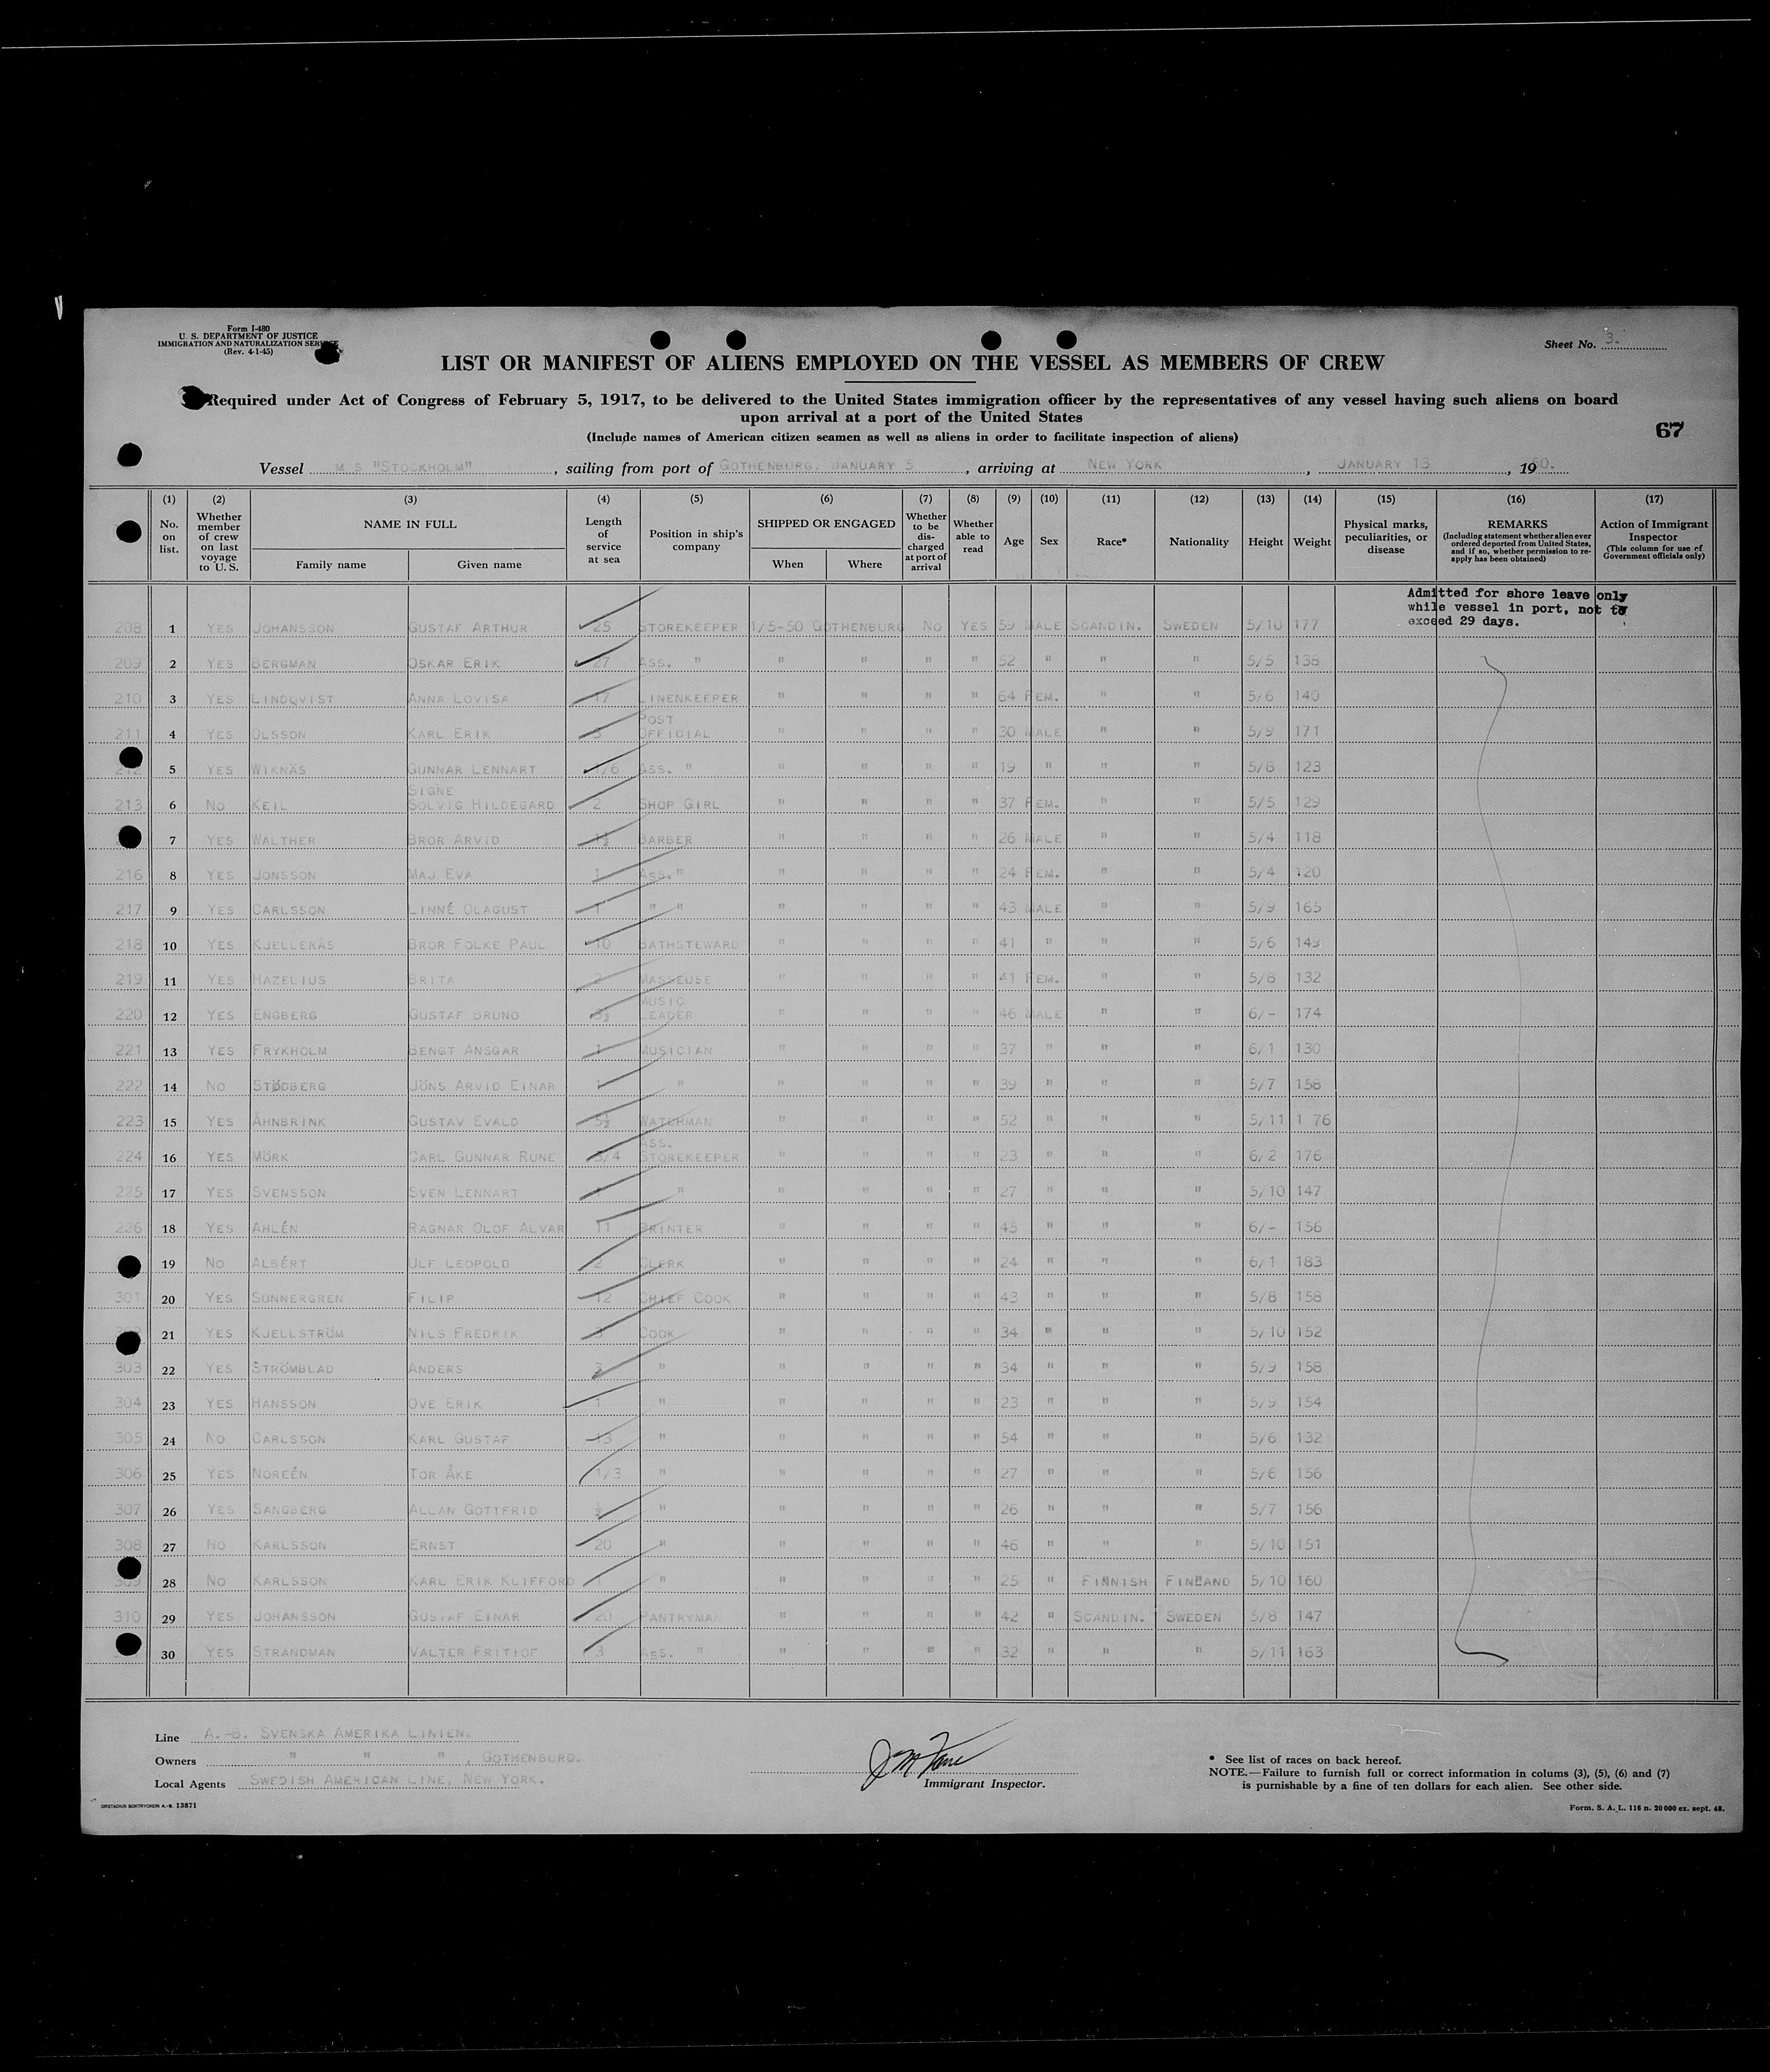 Form I-480
U. S. DEPARTMENT OF JUSTICE
IMMIGRATION AND NATURALIZATION SERVICE
(Rev. 4-1-45)
Sheet No. 3.
LIST OR MANIFEST OF ALIENS EMPLOYED ON THE VESSEL AS MEMBERS OF CREW
Required under Act of Congress of February 5, 1917, to be delivered to the United States immigration officer by the representatives of any vessel having such aliens on board
upon arrival at a port of the United States
(Include names of American citizen seamen as well as aliens in order to facilitate inspection of aliens)
67
Vessel M.S "STOCKHOLM", sailing from port of GOTHENBURG, JANUARY 5, arriving at NEW YORK, JANUARY 13, 1950.
(1) (2) (3) (4) (5) (6) (7) (8) (9) (10) (11) (12) (13) (14) (15) (16) (17)
No. on list. Whether member of crew on last voyage to U. S. NAME IN FULL Family name Given name Length of service at sea Position in ship's company SHIPPED OR ENGAGED When Where Whether to be discharged at port of arrival Whether able to read Age Sex Race* Nationality Height Weight Physical marks, peculiarities, or disease REMARKS (Including statement whether alien ever ordered deported from United States, and if so, whether permission to re-apply has been obtained) Action of Immigrant Inspector (This column for use of Government officials only)
Admitted for shore leave only
while vessel in port, not to
exceed 29 days.
208 1 YES JOHANSSON GUSTAF ARTHUR 25 STOREKEEPER 1/5-50 GOTHENBURG NO YES 59 MALE SCANDIN. SWEDEN 5/10 177
209 2 YES BERGMAN OSKAR ERIK 27 ASS. " " " " " 52 " " " 5/5 136
210 3 YES LINDQVIST ANNA LOVISA 17 LINENKEEPER " " " " 64 FEM. " " 5/6 140
211 4 YES OLSSON KARL ERIK 3 POST OFFICIAL " " " " 30 MALE " " 5/9 171
212 5 YES WIKNÄS GUNNAR LENNART 1/6 ASS. " " " " " 19 " " " 5/8 123
213 6 NO KEIL SIGNE SOLVIG HILDEGARD 2 SHOP GIRL " " " " 37 FEM. " " 5/5 129
7 YES WALTHER BROR ARVID 1½ BARBER " " " " 26 MALE " " 5/4 118
216 8 YES JONSSON MAJ EVA 1 ASS. " " " " " 24 FEM. " " 5/4 120
217 9 YES CARLSSON LINNÉ OLAGUST 1 " " " " " " 43 MALE " " 5/9 165
218 10 YES KJELLERÅS BROR FOLKE PAUL 10 BATHSTEWARD " " " " 41 " " " 5/6 149
219 11 YES HAZELIUS BRITA 2 MASSEUSE " " " " 41 FEM. " " 5/8 132
220 12 YES ENGBERG GUSTAF BRUNO 3½ MUSIC LEADER " " " " 46 MALE " " 6/- 174
221 13 YES FRYKHOLM BENGT ANSGAR 1 MUSICIAN " " " " 37 " " " 6/1 130
222 14 NO STÖDBERG JÖNS ARVID EINAR 1 " " " " " 39 " " " 5/7 158
223 15 YES ÅHNBRINK GUSTAV EVALD 5½ WATCHMAN " " " " 52 " " " 5/11 1 76
224 16 YES MÖRK CARL GUNNAR RUNE 3/4 ASS. STOREKEEPER " " " " 23 " " " 6/2 176
225 17 YES SVENSSON SVEN LENNART 1 " " " " " 27 " " " 5/10 147
226 18 YES AHLÉN RAGNAR OLOF ALVAR 11 PRINTER " " " " 45 " " " 6/- 156
19 NO ALBÉRT ULF LEOPOLD 2 CLERK " " " " 24 " " " 6/1 183
301 20 YES SUNNERGREN FILIP 12 CHIEF COOK " " " " 43 " " " 5/8 158
21 YES KJELLSTRÖM NILS FREDRIK 3 COOK " " " " 34 " " " 5/10 152
303 22 YES STRÖMBLAD ANDERS 3 " " " " " 34 " " " 5/9 158
304 23 YES HANSSON OVE ERIK 1 " " " " " 23 " " " 5/9 154
305 24 NO CARLSSON KARL GUSTAF 13 " " " " " 54 " " " 5/6 132
306 25 YES NOREÉN TOR ÅKE 1/3 " " " " " 27 " " " 5/6 156
307 26 YES SANGBERG ALLAN GOTTFRID ½ " " " " " 26 " " " 5/7 156
308 27 NO KARLSSON ERNST 20 " " " " " 46 " " " 5/10 151
309 28 NO KARLSSON KARL ERIK KLIFFORD 1 " " " " " 25 " FINNISH FINLAND 5/10 160
310 29 YES JOHANSSON GUSTAF EINAR 20 PANTRYMAN " " " " 42 " SCANDIN. SWEDEN 5/8 147
30 YES STRANDMAN VALTER FRITIOF 3 ASS. " " " " " 32 " " " 5/11 163
Line A.-B. SVENSKA AMERIKA LINIEN.
Owners " " ", GOTHENBURG.
Local Agents SWEDISH AMERICAN LINE, NEW YORK.
Immigrant Inspector.
* See list of races on back hereof.
NOTE.—Failure to furnish full or correct information in colums (3), (5), (6) and (7)
is purnishable by a fine of ten dollars for each alien. See other side.
ORSTADIUS BOKTRYCKERI A.-B. 13871
Form. S. A. L. 116 n. 20 000 ex. sept. 48.